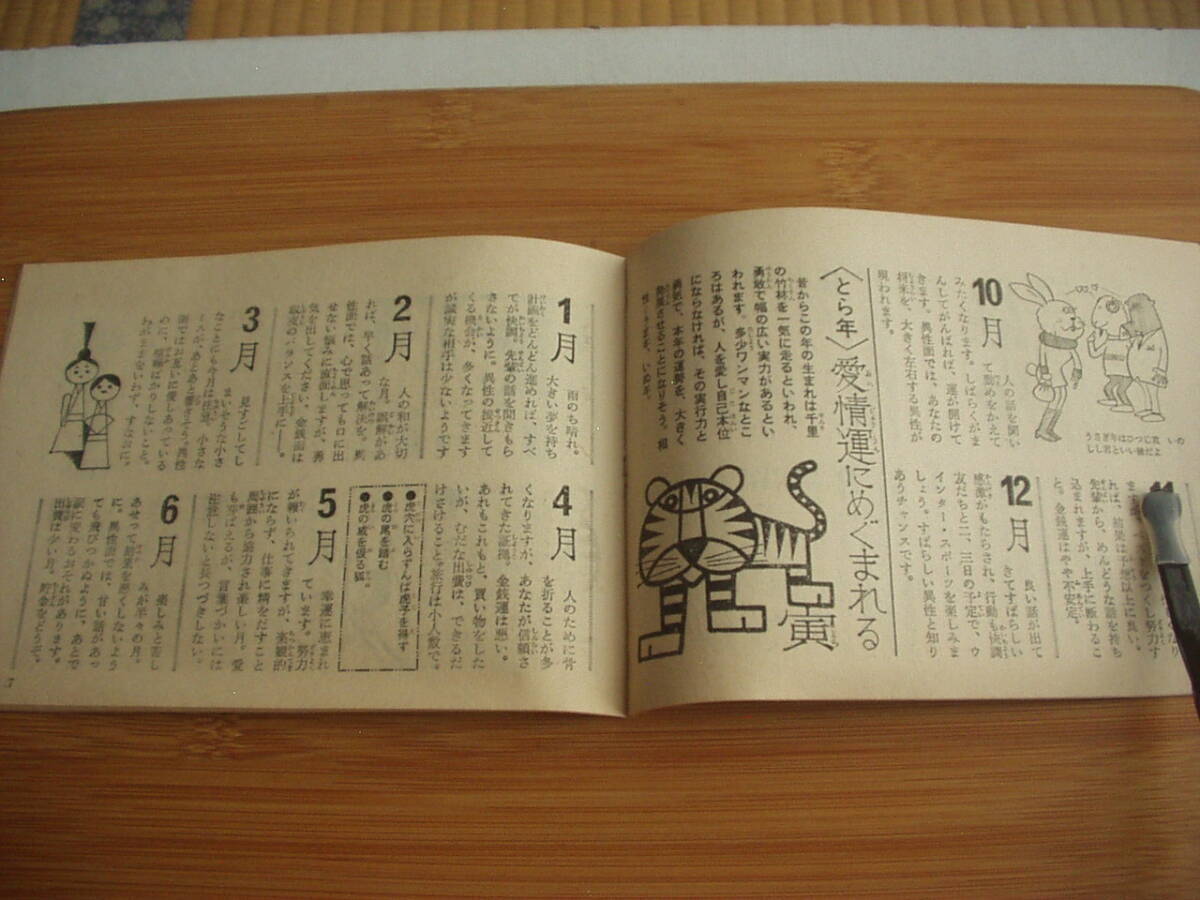 10月
人の話を聞い
て薬めをかえて
みたくなります。しばらくがま
んしてがんばれば、運が開けて
きます。異性面では、あなたの
将来を、大きく左右する異性が
現われます。
うさぎ年はひつじ年 いの
しし君といい縁だよ
11
予想以上に良い。
先輩から、めんどうな話を持ち
込まれますが、上手に断わるこ
と。金銭運はやや不安定。
12月
良い話が出て
きてすばらしい
感激がもたらされ、行動も快調
友だちと二、三日の予定で、ウ
インター・スポーツを楽しみま
しょう。すばらしい異性と知り
あうチャンスです。
〈とら年〉愛情運にめぐまれる
寅
昔からこの年の生まれは千里
の竹林を一気に走るといわれ、
勇敢で幅の広い実力があるとい
われます。多少ワンマンなとこ
ろはあるが、人を愛し自己本位
にならなければ、その実行力と
勇気で、本年の運勢を、大きく
発展させることになりそう。相
性…うま、いぬ年。
1月
雨のち晴れ。
大きい夢を持ち
計画をどんどん進めれば、すべ
てが快調。先輩の話を聞きもら
さないように。異性の接近して
くる機会が、多くなってきます
が誠実な相手は少ないようです
2月
人の和が大切
な月。誤解があ
れば、早く話あって解決を。異
性面では、心で思っても口に出
せない悩みに直面しますが、勇
気を出してください。金銭面は
収支のバランスを上手に――。
3月
見すごしてし
まいそうな小さ
なことにも今月は注意。小さな
ミスが、あとあと響きそう。異性
面ではお互いに愛しあっている
のに、喧嘩ばかりしないこと。
わがまま言いわず、すなおに。
4月
人のために骨
を折ることが多
くなりますが、あなたが信頼さ
れてきた証拠。金銭運は悪い。
あれもこれもと、買い物をした
いが、むだな出費は、できるだ
けさけること。旅行は小人数で。
●虎穴に入らずんば虎子を得ず
●虎の尾を踏む
●虎の威を仮る狐
5月
幸運に恵まれ
ています。努力
が報いられてきますが、楽観的
にならず、仕事に精をだすこと
周囲から協力され楽しい月。愛
も芽ばえるが、言葉づかいには
注意しないと長つづきしない。
6月
楽しみと苦し
みが半々の月。
あせって結果を悪くしないよう
に。異性面では、甘い話があっ
ても飛びつかぬように、あとで
涙に変わるおそれがあります。
出費は少い月。貯金をどうぞ。